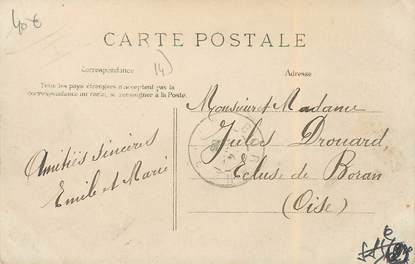 40 €
CARTE POSTALE
14
Correspondance
Adresse
Tous les pays étrangers n'acceptent pas la
correspondance au recto, se renseigner à la Poste.
Monsieur et Madame
Jules Drouard
Ecluse de Boran
(Oise)
Amitiés sincères
Emile et Marie